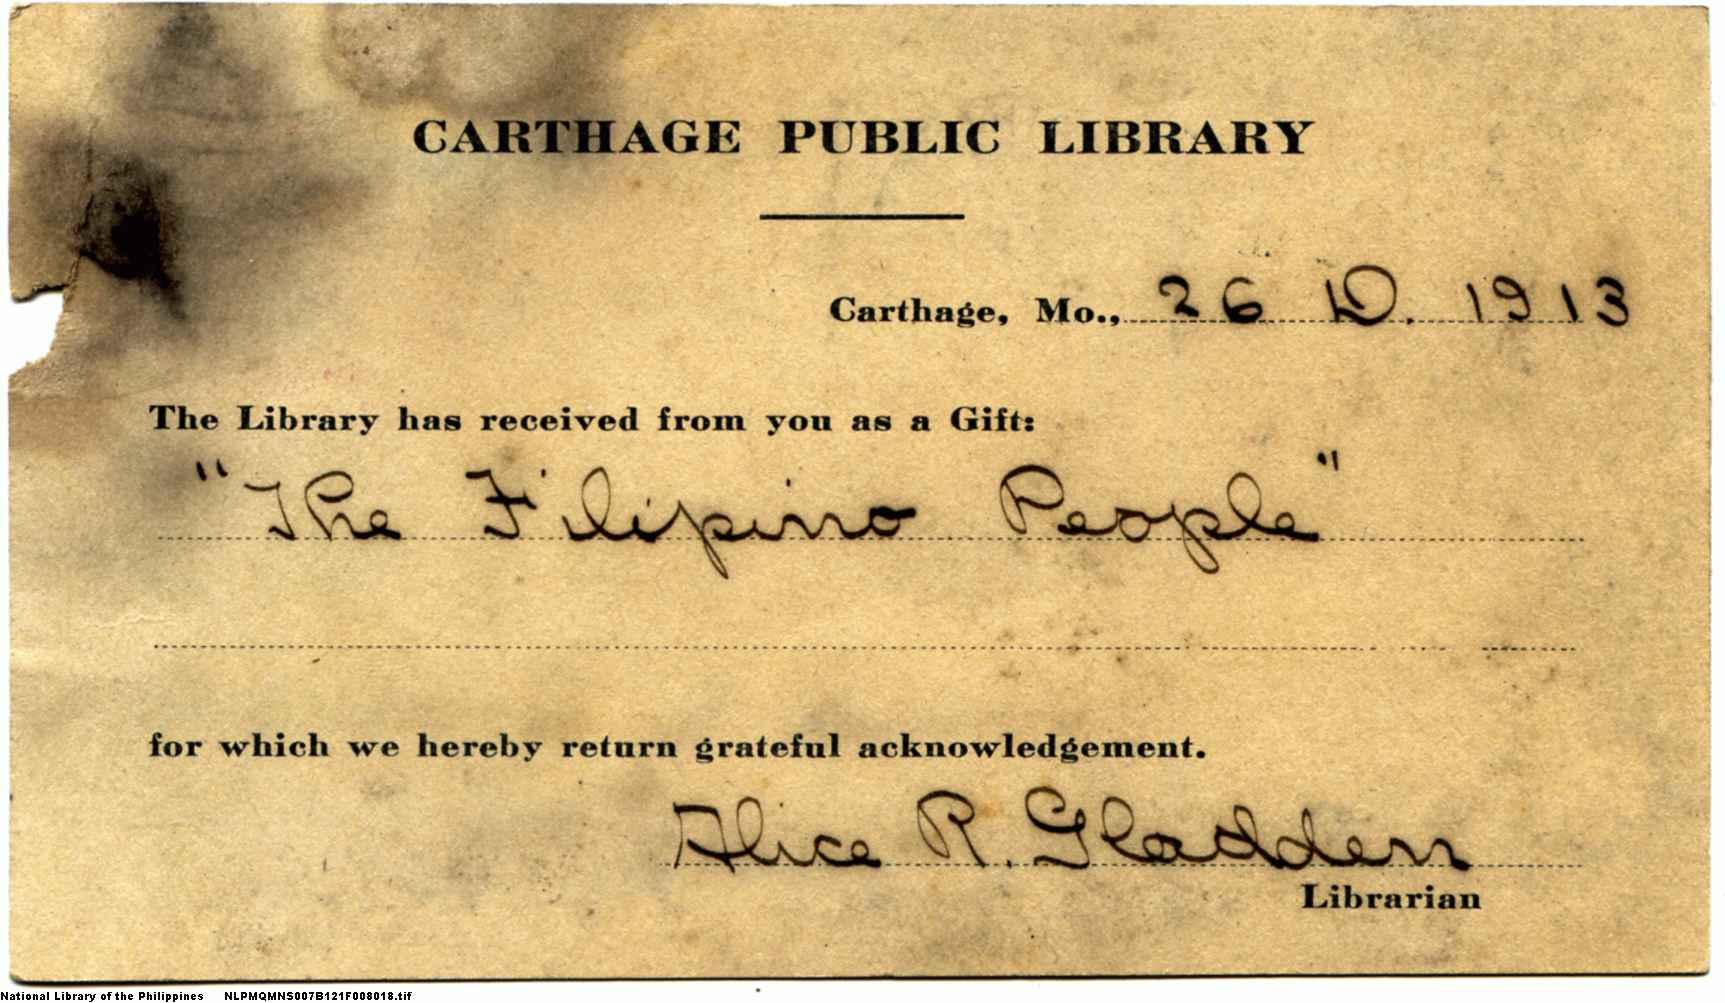 CARTHAGE PUBLIC LIBRARY
Carthage, Mo., 26 D. 1913
The Library has received from you as a Gift:
"The Filipino People"
for which we hereby return grateful acknowledgement.
Alice R. Gladden
Librarian
National Library of the Philippines NLPMQMNS007B121F008018.tif